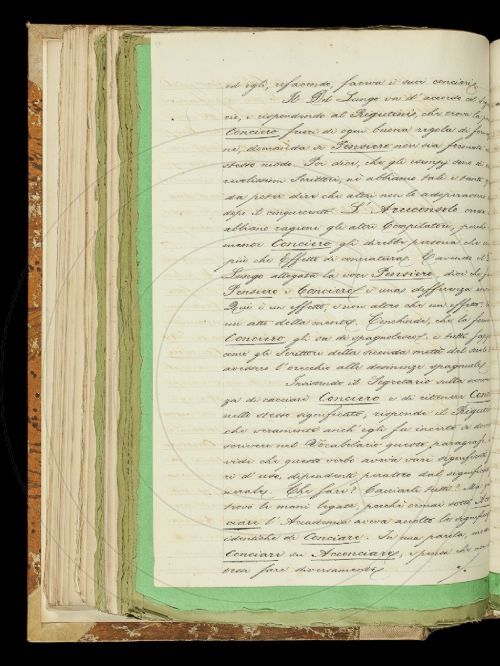 ed egli, rifacendo, faceva i suoi concieri.
Il Del Lungo va d'accordo col
cio, e rispondendo al Rigutini, che trova la
Conciero fuori di ogni buona regola di for
ne, domanda se Pensiero non sia formato
stesso modo. Poi dice, che gli esempj sono di
revolissimi Scrittori, nè abbiamo tali e tante
da poter dire che altri non lo adoperarono
dopo il cinquecento. L'Arciconsolo crede
abbiano ragione gli altri Compilatori, perchè
mente Conciero gli direbbe persona che
più che Effetto di conciatura. E avendo il
Lungo allegata la voce Pensiero, dice che fra
Pensiero e Conciero è una differenza
Qui è un effetto, e non altro che un effetto,
un atto della mente. Conchiude, che la forma
Conciero gli sa di spagnolesco: e tutti sap
come gli Scrittori della seconda metà del
avessero l'orecchio alle desinenze spagnuole.
Insistendo il Segretario sulla
za di cacciare Conciero e di ritenere Con
nello stesso significato, risponde il Rigutini
che veramente anch'egli fu incerto a
scrivere nel Vocabolario questo paragrafo
vide che questo verbo aveva varj significati
ri d'uso, dipendenti peraltro dal significato
nerale. Che fare? Cacciarli tutti? Ma
trovò le mani legate, perchè ormai sotto Ac
ciare l'Accademia aveva accolto i significati
identiche di Conciare. In una parola,
Conciare su Acconciare, e pensa che non
possa fare diversamente.